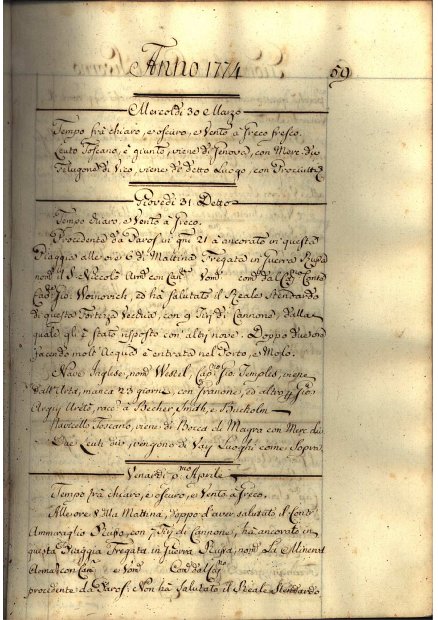 Anno 1774
69
Mercoldi 30 Marzo
Tempo frà chiaro, e oscuro, e Vento à Greco fresco.
Leuto Toscano, è giunto, viene di Genova, con Merc. div
Felugone di Vico, viene di detto Luogo, con
Giovedi 31 Detto
Tempo chiaro, e Vento à Greco.
Procedente da Paros in gni 21 à ancorato in questa
Piaggia alle ore 6 di Mattina Fregata in Guerra
nom. S. Niccolò Arm. con Can. Uom. com. dal Conte
Gio: Woinovich, ed hà salutato il Reale Stendardo
di questa Fortezza Vecchia, con 9 Tirj di Cannone, dalla
quale gli è stato risposto con altri nove. Doppo due ore
facendo molt' Acqua è entrata nel Porto, e Molo.
Nave Inglese, nom. Gio: Temples, viene
dall' Arta, manca 23 giorni, con Granone, ed altro
racc. à Becher, Smith, e
Navicello Toscano, viene di Bocca di Magra con Merc. div.
Due Leuti div, vengono di Varj Luoghi come Sopra
Venardi p.mo Aprile
Tempo frà chiaro, e oscuro, e Vento à Greco.
Alle ore 8 della Mattina, doppo d'aver salutato il Cont'
Ammiraglio Russo, con 7 Tirj di Cannone, hà ancorato in
questa Piaggia Fregata in Guerra Russa, nom. La Minerva
Armata con Can. e Uom. Com. dal
procedente da Paros; Non hà salutato il Reale Stendardo